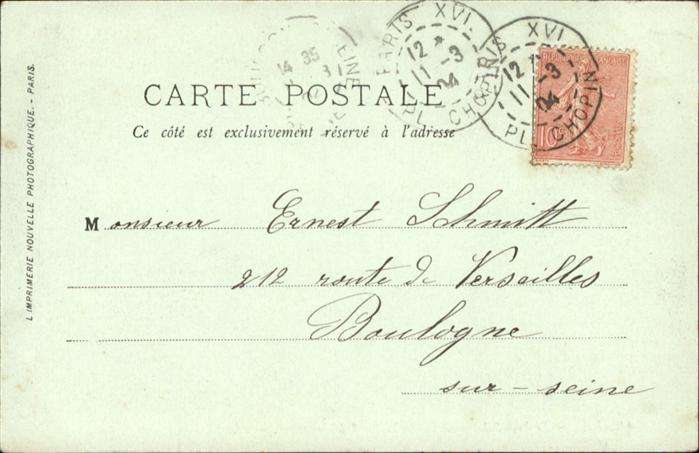 PARIS XVI
12 *
11 -3
04
PL. CHOPIN
PARIS XVI
12 *
11 -3
04
PL. CHOPIN
14 35
SEINE
10
CARTE POSTALE
Ce côté est exclusivement réservé à l'adresse
Monsieur Ernest Schmitt
212 route de Versailles
Boulogne
sur-seine
L'IMPRIMERIE NOUVELLE PHOTOGRAPHIQUE. - PARIS.